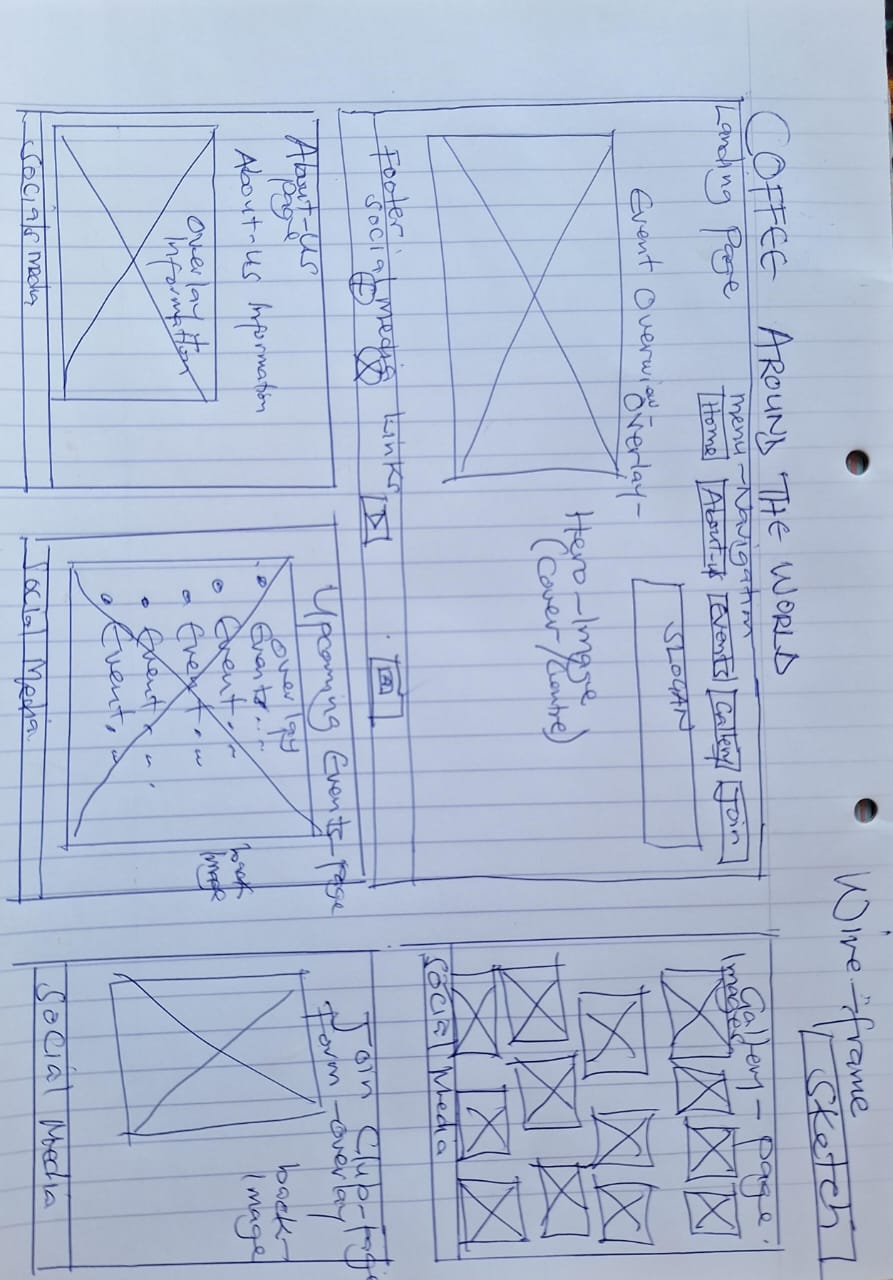 COFFEE AROUND THE WORLD
Wire-frame
Sketch
Landing Page
Menu-Navigation
Home
About-us
Events
Gallery
Join
SLOGAN
Event Overview-Overlay-
Hero-Image
(Cover/Centre)
Footer
Social Media Links
Gallery-Page
Images
Social Media
About-Us
page
About-Us Information
Overlay
Information
Social media
Upcoming Events-Page
Overlay
Events...
Event...
Event...
Event...
Event...
back
Image
Social Media
Join Club-Page
Form-Overlay
back-
Image
Social Media